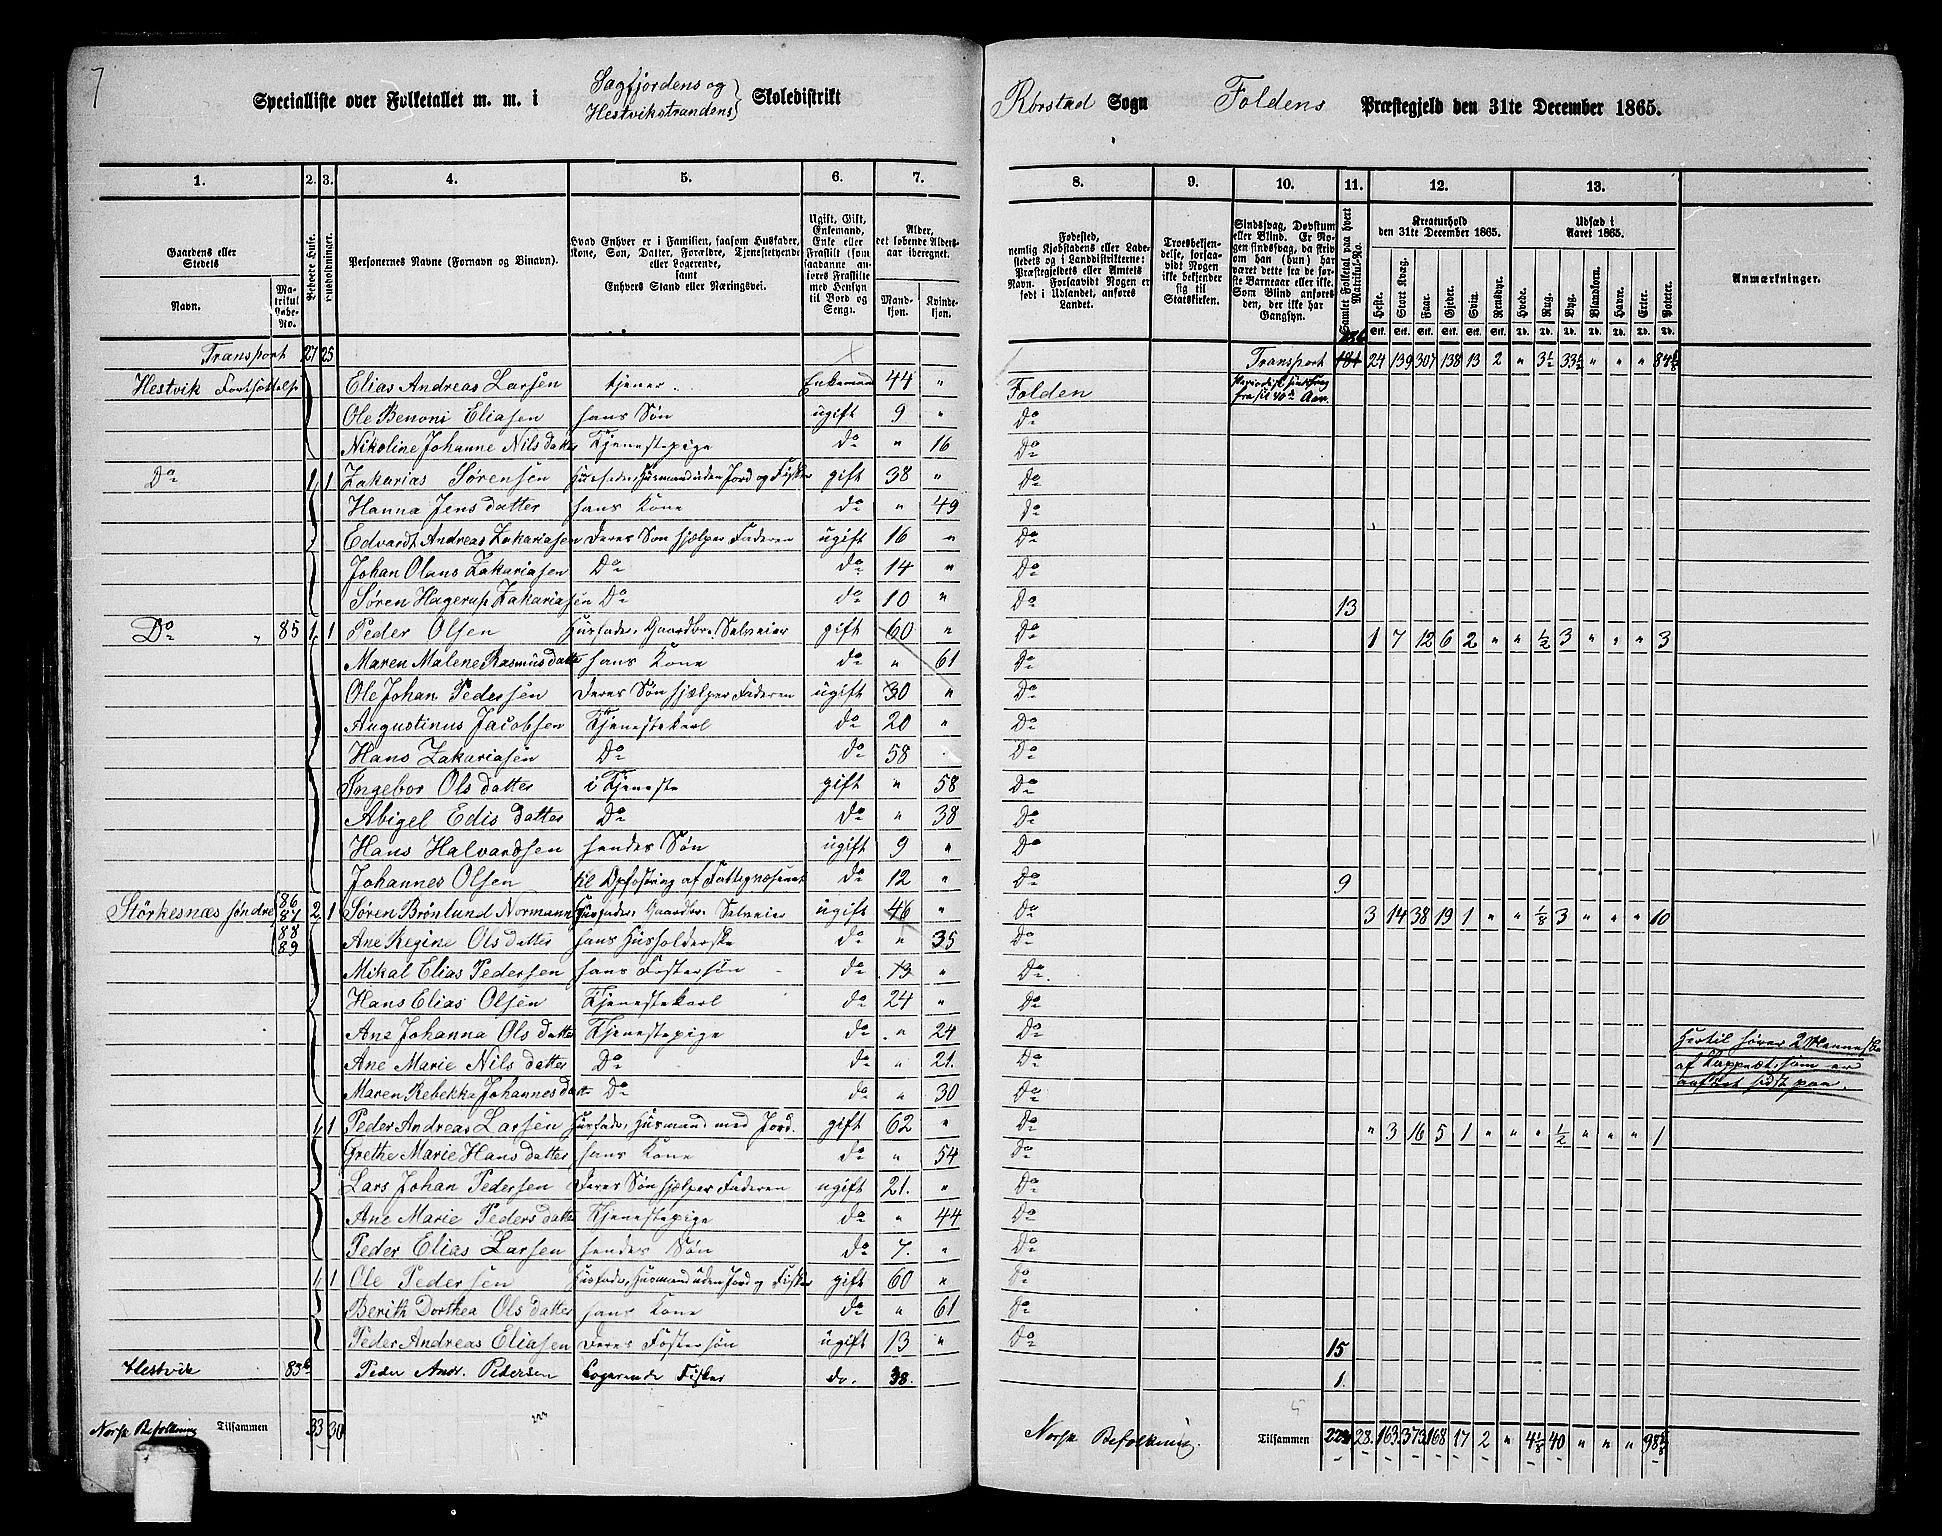 7
Specialliste over Folketallet m. m. i Sagfjordens og Hestvikstrandens Skoledistrikt
Rørstad Sogn Foldens Præstegjeld den 31te December 1865.
1. 2. 3. 4. 5. 6. 7. 8. 9. 10. 11. 12. 13.
Gaardens eller Stedets
Navn.
Matrikul Løbe-No.
Beboede Huse.
Husholdninger.
Personernes Navne (Fornavn og Binavn).
Hvad Enhver er i Familien, saasom Husfader, Kone, Søn, Datter, Forældre, Tjenestetyende eller Logerende, samt Enhvers Stand eller Næringsvei.
Ugift, Gift, Enkemand, Enke eller Fraskilt (som saadanne anføres Fraskilte med Hensyn til Bord og Seng).
Alder, det løbende Aldersaar iberegnet.
Mandkjøn. Kvindekjøn.
Fødested, nemlig Kjøbstadens eller Ladestedets og i Landdistrikterne: Præstegjeldets eller Amtets Navn. Forsaavidt Nogen er født i Udlandet, anføres Landet.
Troesbekjendelse, forsaavidt Nogen ikke bekjender sig til Statskirken.
Sindssvag, Døvstum eller Blind. Er Nogen sindssvag, da skriv om han (hun) har været dette fra de første Barneaar eller ikke. Som Blind anføres den, der ikke har Gangsyn.
Samlet Folketal paa hvert Matrikul-No.
Kreaturhold den 31te December 1865.
Heste. Stort Kvæg. Faar. Gjeder. Svin. Rensdyr.
Udsæd i Aaret 1865.
Hvede. Rug. Byg. Blandkorn. Havre. Erter. Poteter.
Anmærkninger.
Transport 27 25 Transport 181 24 139 307 138 13 2 " 3½ 33½ " " "
Hestvik Fortsættelse Elias Andreas Larsen tjener. Enkemand 44 " Folden
Ole Benoni Eliasen hans Søn ugift 9 " Do
Nikoline Johanne Nilsdatter Tjenestepige do " 16 Do
Do 1 1 Zakarias Sørensen Husfader, Husmand uden Jord og Fisker gift 38 " Do
Hanna Jensdatter hans Kone do " 49 Do
Edvardt Andreas Zakariasen Deres Søn hjælper Faderen ugift 16 " Do
Johan Olaus Zakariasen Do do 14 " Do
Søren Hagerup Zakariasen Do do 10 " Do 13
Do " 85 1 1 Peder Olsen Husfader, Gaardbr. Selveier gift 60 " Do 1 7 12 6 2 " " ½ 3 " " " 3
Maren Malene Rasmusdatter hans Kone do " 61 Do
Ole Johan Pedersen Deres Søn hjælper Faderen ugift 30 " Do
Augustinus Jacobsen Tjenestekarl do 20 " Do
Hans Zakariasen Do do 58 Do
Ingebor Olsdatter i Tjeneste gift " 58 Do
Abigel Edisdatter Do do " 38 Do
Hans Halvardsen hendes Søn ugift 9 " Do
Johannes Olsen til Opfostring af Fattigvæsenet do 12 " Do 9
Störkesnæs søndre 86 87 88 89 2 1 Søren Brønlund Normann Husfader, Gaardbr. Selveier ugift 46 " Do 3 14 38 19 1 " " ⅛ 3 " " " 10
Ane Regine Olsdatter hans Husholderske do " 35 Do
Mikal Elias Pedersen hans Fostersøn do 13 " Do
Hans Elias Olsen Tjenestekarl do 24 " Do
Ane Johanna Olsdatter Tjenestepige do " 24 Do
Ane Marie Nilsdatter Do do " 21. Do
Maren Rebekka Johannesdatter Do do " 30 Do
Hertil hører 2 Mennesker
af Lappeæt, som er
anført sidst paa.
1 1 Peder Andreas Larsen Husfader, Husmand med Jord. gift 62 " Do " 3 16 5 1 " " " ½ " " " 1
Grethe Marie Hansdatter hans Kone do " 54 Do
Lars Johan Pedersen Deres Søn hjælper Faderen ugift 21. " Do
Ane Marie Pedersdatter Tjenestepige do " 44 Do
Peder Elias Larsen hendes Søn do 7. " Do
1 1 Ole Pedersen Husfader, Husmand uden Jord og Fisker gift 60 " Do
Berith Dorthea Olsdatter hans Kone do " 61 Do
Peder Andreas Eliasen Deres Fostersøn ugift 13 " Do 15
Hestvik 83b Peder Andr. Pedersen Logerende Fisker do. 38. 1.
Norsk Befolkning Tilsammen 33 30 Norsk Befolkning. Tilsammen 28. 163 373 168 17 2 " 4⅛ 40 " " "